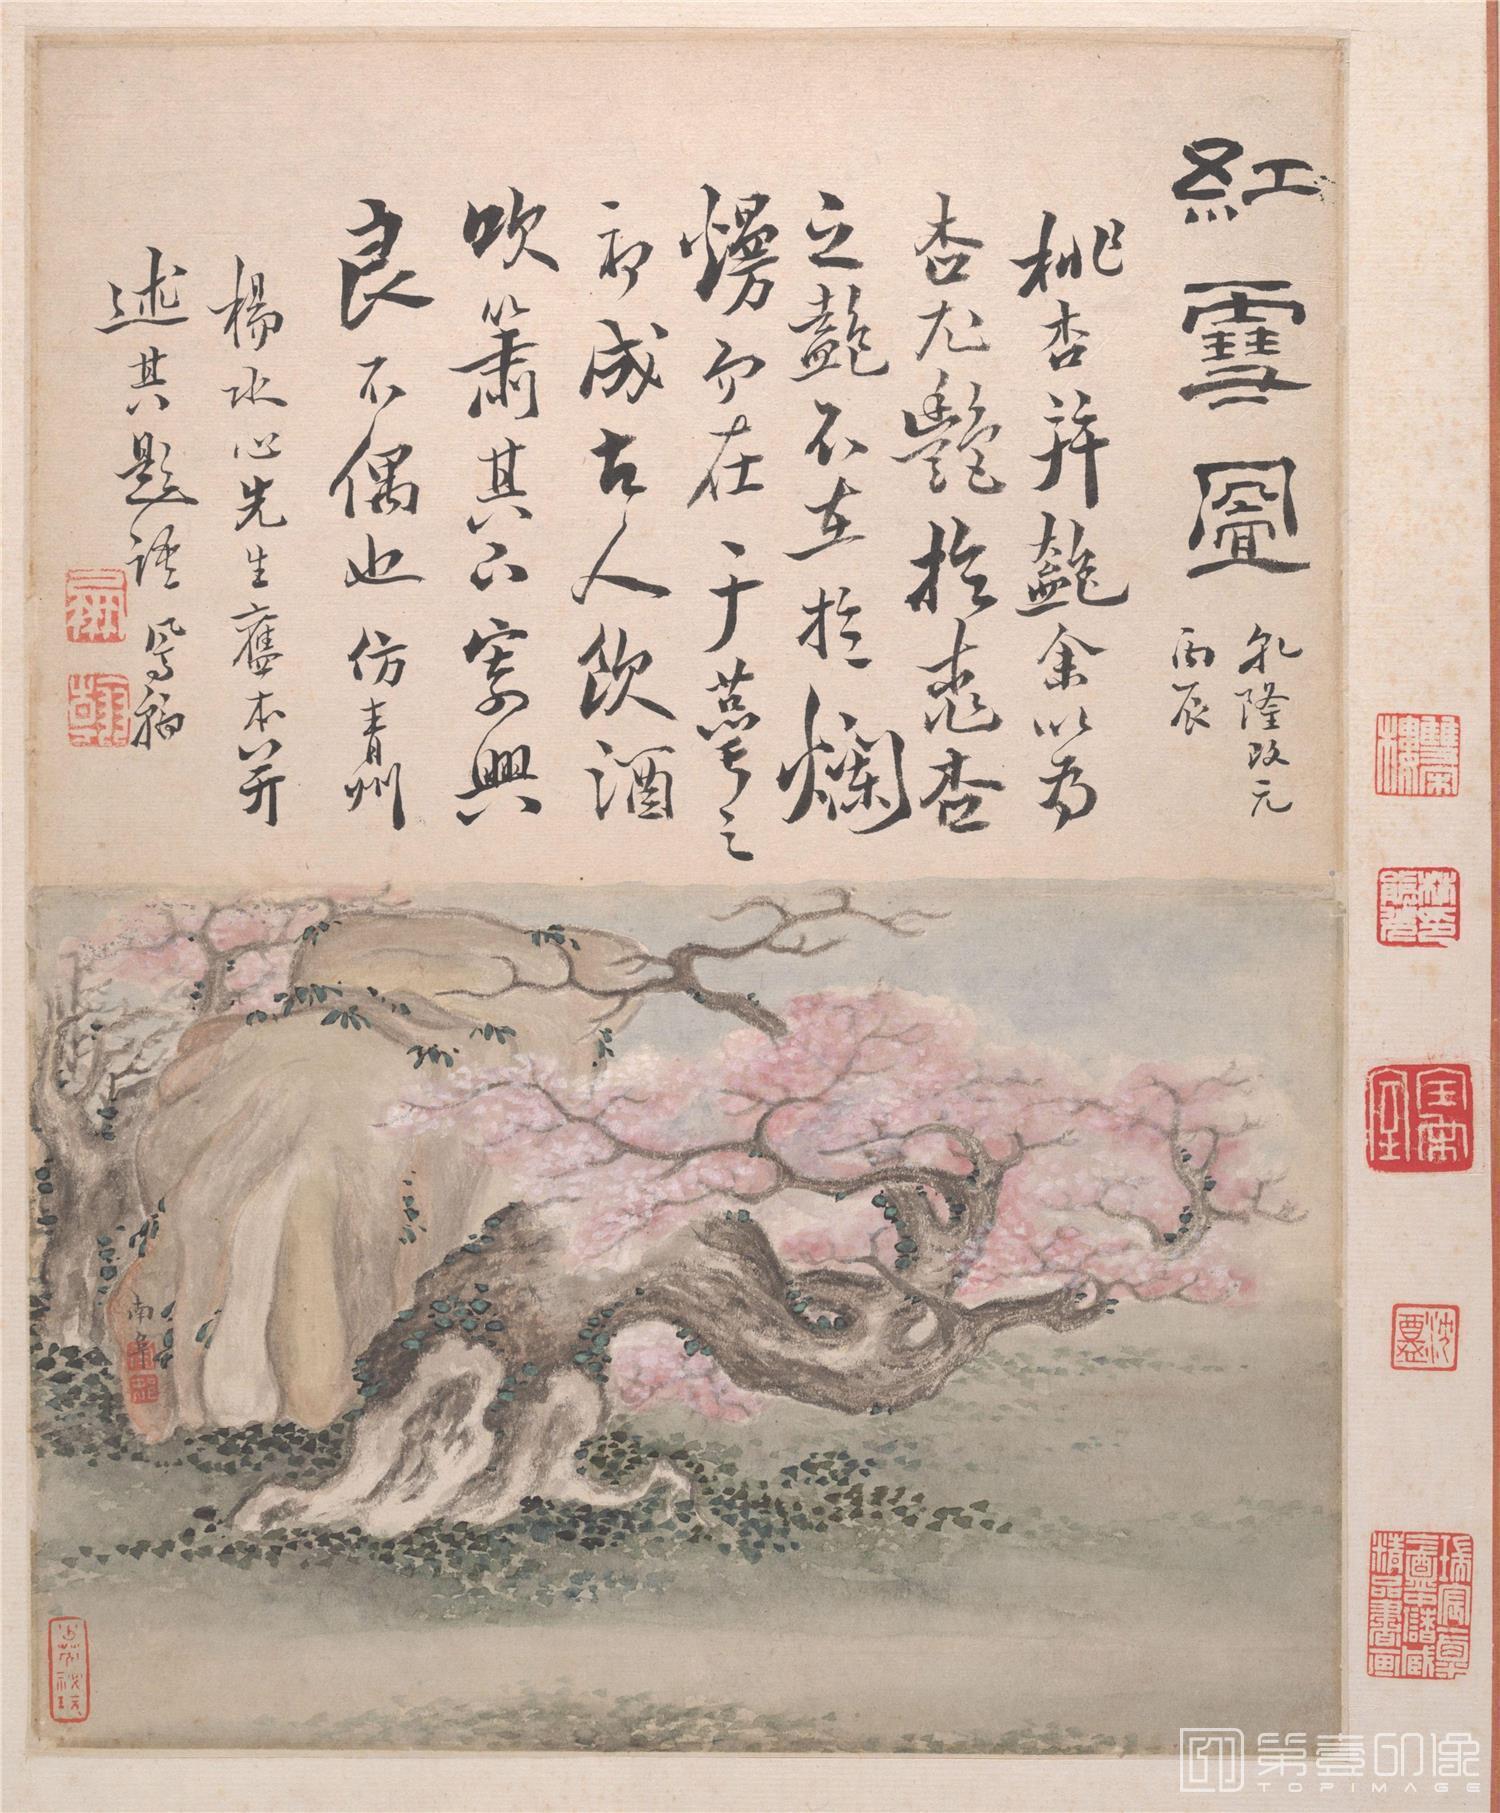 紅雪圖
乾隆改元
丙辰
桃杏并艷余以爲
杏尤艷於桃杏
之艷不在於爛
熳而在于蓓蕾之
初成古人飲酒
吹簫其下寄興
良不偶也仿青州
楊水心先生舊本並
述其題語鳳翰
南阜
第壹印像
TOPIMAGE